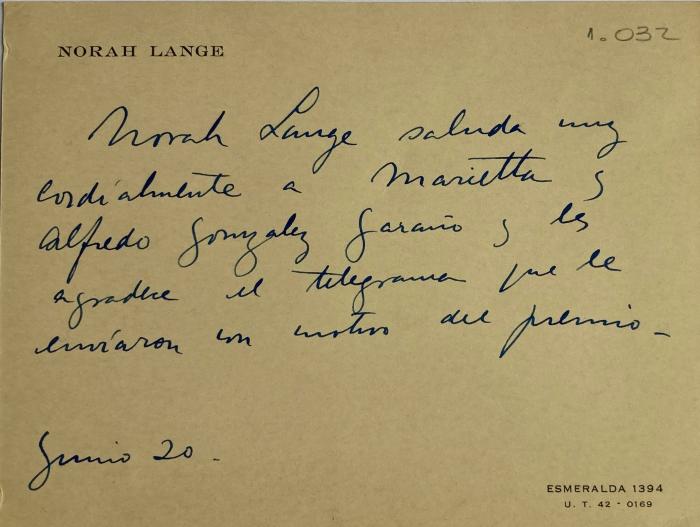 NORAH LANGE
1.032
Norah Lange saluda muy
cordialmente a Marietta y
Alfredo Gonzalez Garaño y les
agradece el telegrama que le
enviaron con motivo del premio-
Junio 20-
ESMERALDA 1394
U. T. 42 - 0169